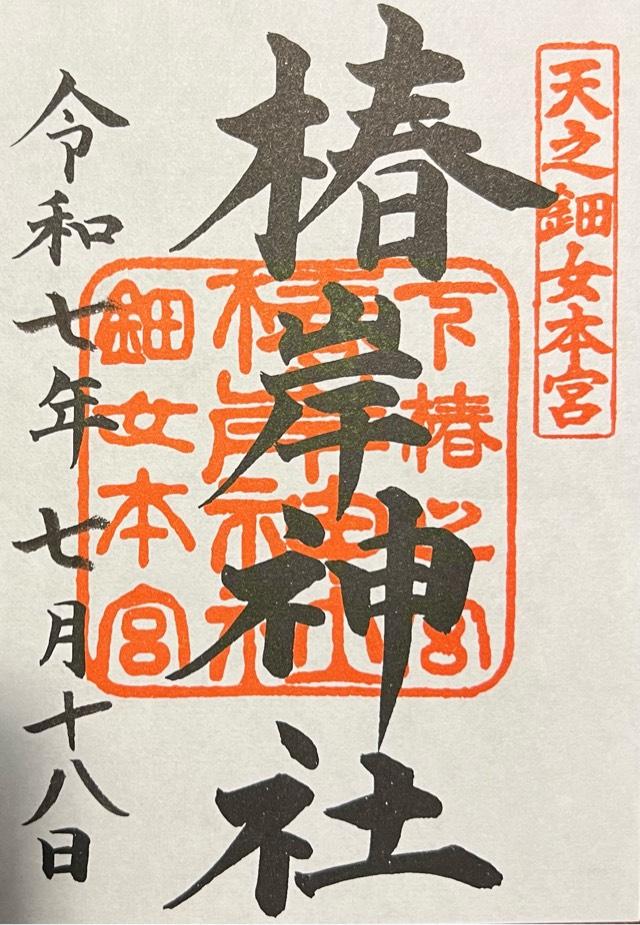 天之鈿女本宮
椿岸神社
下椿之宮
椿岸神社
鈿女本宮
令和七年七月十八日